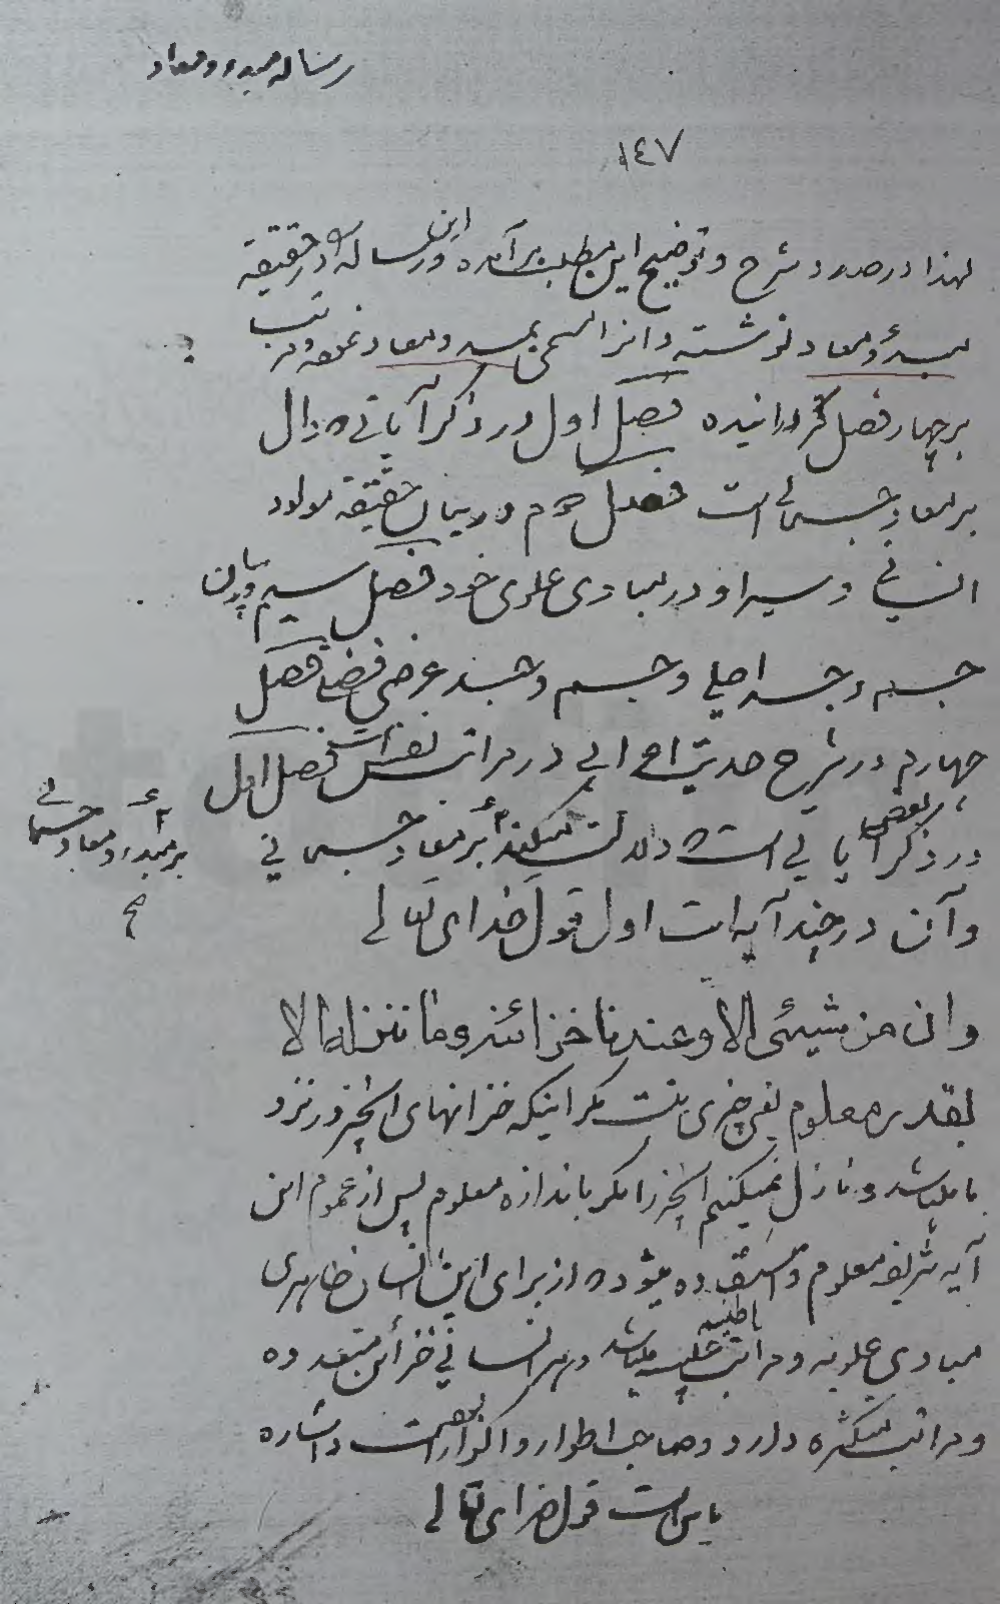 رساله مبدء و معاد
١٤٧
لهذا در صدد شرح و توضیح این مطلب برآمده و این رساله را در حقیقة
مبدء و معاد نوشته و انرا مسمی بمبدء و معاد نموده و مرتب
بر چهار فصل گردانیده فصل اول در ذکر آیاتی که دال
بر معاد جسمانی است فصل دوم در بیان حقیقة مولود
انسانی و سیر او در مبادی علوی خود فصل سیم در بیان
جسم و جسد اصلی و جسم و جسد عرضی فضلی فصل
چهارم در شرح حدیث اعرابی در مراتب نفس است فصل اول
در ذکر بعضی آیاتی است که دلالت میکند بر معاد جسمانی
بر مبدء و معاد جسمانی
صح
و آن در چند آیه است اول قول خدای تعالی
وان من شیئی الا وعندنا خزائنه وما ننزله الا
بقدر معلوم یعنی چیزی نیست مگر اینکه خزانهای آنچیز در نزد
ما میباشد و نازل نمیکنیم آنچیز را مگر باندازه معلوم پس از عموم این
آیه شریفه معلوم و مستفاده میشود که از برای این انسان ظاهری
مبادی علویه و مراتب باطنیه میباشد و هر انسانی خزائن متعدده
و مراتب متکثره دارد و صاحب اطوار و اکوار است و اشاره
باین است قول خدای تعالی